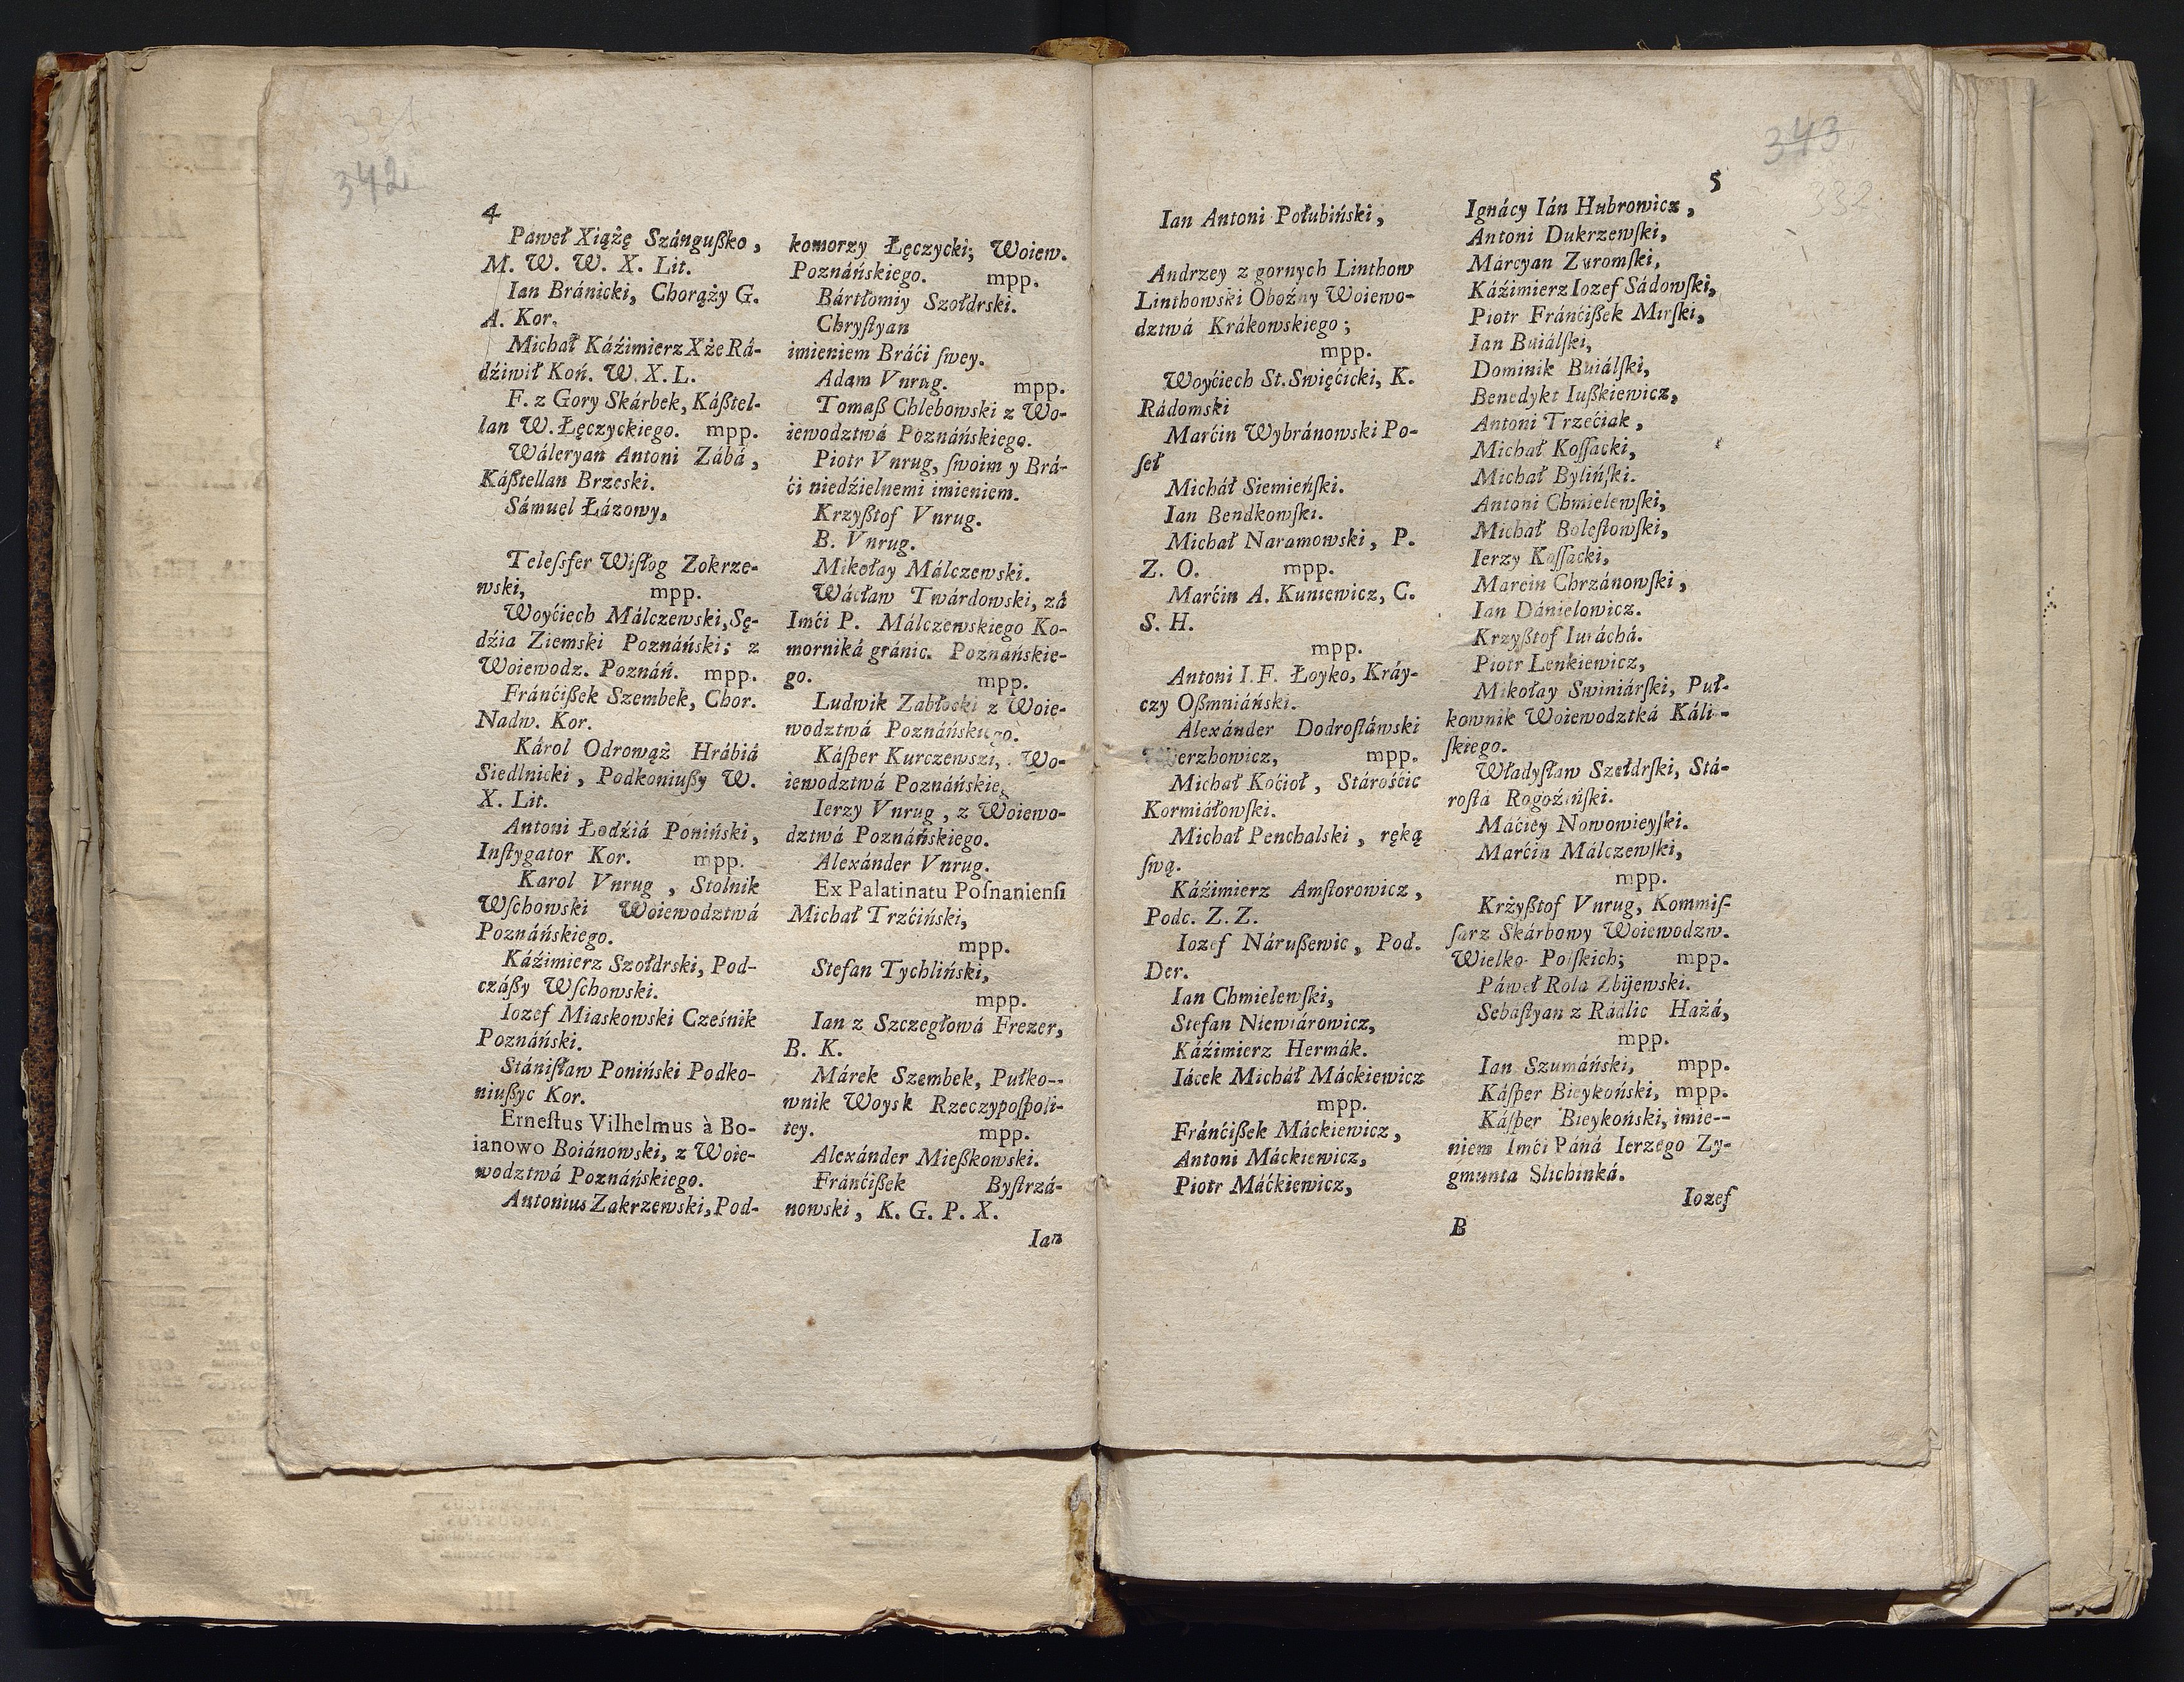 342
4
Paweł Xiążę Szángußko,
M. W. W. X. Lit.
Ian Bránicki, Chorąży G.
A. Kor.
Michał Káźimierz Xże Rá-
dźiwił Koń. W. X. L.
F. z Gory Skárbek, Káßtel-
lan W. Łęczyckiego. mpp.
Wáleryan Antoni Zábá,
Káßtellan Brzeski.
Sámuel Łázowy,
Teleſsfer Wiſłog Zokrze-
wski, mpp.
Woyćiech Málczewski, Sę-
dźia Ziemski Poznáński; z
Woiewodz. Poznáń. mpp.
Fránćißek Szembek, Chor.
Nadw. Kor.
Károl Odrowąż Hrábiá
Siedlnicki, Podkoniußy W.
X. Lit.
Antoni Łodźiá Poniński,
Inſtygator Kor. mpp.
Karol Vnrug, Stolnik
Wſchowski Woiewodztwá
Poznáńskiego.
Káźimierz Szołdrski, Pod-
czáßy Wſchowski.
Iozef Miaskowski Cześnik
Poznáński.
Stániſław Poniński Podko-
niußyc Kor.
Erneſtus Vilhelmus à Bo-
ianowo Boiánowski, z Woie-
wodztwá Poznáńskiego.
Antonius Zakrzewski, Pod-
komorzy Łęczycki; Woiew.
Poznáńskiego. mpp.
Bártłomiy Szołdrski.
Chryſtyan
imieniem Bráći ſwey.
Adam Vnrug. mpp.
Tomaß Chlebowski z Wo-
iewodztwá Poznáńskiego.
Piotr Vnrug, ſwoim y Brá-
ći niedźielnemi imieniem.
Krzyßtof Vnrug.
B. Vnrug.
Mikołay Málczewski.
Wácław Twárdowski, zá
Imći P. Málczewskiego Ko-
morniká gránic. Poznáńskie-
go. mpp.
Ludwik Zabłocki z Woie-
wodztwá Poznáńskiego.
Káſper Kurczewszi, Wo-
iewodztwá Poznáńskieg
Ierzy Vnrug, z Woiewo-
dztwá Poznáńskiego.
Alexánder Vnrug.
Ex Palatinatu Poſnanienſi
Michał Trzćiński,
mpp.
Stefan Tychliński,
mpp.
Ian z Szczegłowá Frezer,
B. K.
Márek Szembek, Pułko--
wnik Woysk Rzeczypoſpoli-
tey. mpp.
Alexánder Mießkowski.
Fránćißek Byſtrzá-
nowski, K. G. P. X.
Ian
343
332
5
Ian Antoni Połubiński,
Andrzey z gornych Linthow
Linthowski Oboźny Woiewo-
dztwá Krákowskiego;
mpp.
Woyćiech St. Swięćicki, K.
Rádomski
Marćin Wybránowski Po-
ſeł
Micháł Siemieńſki.
Ian Bendkowſki.
Michał Naramowski, P.
Z. O. mpp.
Marćin A. Kuniewicz, C.
S. H.
mpp.
Antoni I. F. Łoyko, Kráy-
czy Oßmniáński.
Alexánder Dodroſłáwski
Wierzhowicz, mpp.
Michał Koćioł, Stárośćic
Kormiáłowſki.
Michał Penchalski, ręką
ſwą.
Káźimierz Amſtorowicz,
Podc. Z. Z.
Iozef Nárußewic, Pod.
Der.
Ian Chmielewſki,
Stefan Niewiárowicz,
Káźimierz Hermák.
Iácek Micháł Máckiewicz
mpp.
Fránćißek Máckiewicz,
Antoni Máckiewicz,
Piotr Máćkiewicz,
Ignácy Ián Hubrowicz,
Antoni Dukrzewſki,
Márcyan Zuromſki,
Káźimierz Iozef Sádowſki,
Piotr Fránćißek Mirſki,
Ian Buiálſki,
Dominik Buiálſki,
Benedykt Iußkiewicz,
Antoni Trzećiak,
Michał Koſſacki,
Michał Bylińſki.
Antoni Chmielewſki,
Michał Boleſłowſki,
Ierzy Koſſacki,
Marcin Chrzánowſki,
Ian Dánielowicz.
Krzyßtof Iuráchá.
Piotr Lenkiewicz,
Mikołay Swiniárſki, Puł-
kownik Woiewodztká Káli--
ſkiego.
Władyſław Szełdrſki, Stá-
roſta Rogoźińſki.
Máćiey Nowowieyſki.
Marćin Málczewſki,
mpp.
Krżyßtof Vnrug, Kommiſ-
ſarz Skárbowy Woiewodzw.
Wielko-Polſkich; mpp.
Páweł Rola Zbijewski.
Sebáſtyan z Rádlic Hażá,
mpp.
Ian Szumáński, mpp.
Káſper Bieykoński, mpp.
Káſper Bieykoński, imie--
niem Imći Páná Ierzego Zy-
gmunta Slichinká.
Iozef
B